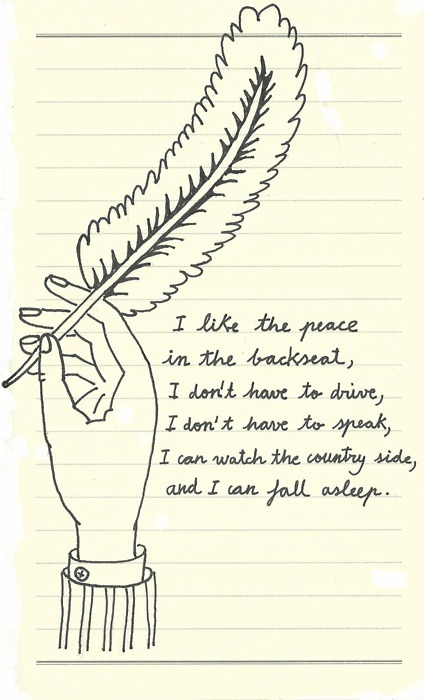 I like the peace
in the backseat,
I don't have to drive,
I don't have to speak,
I can watch the country side,
and I can fall asleep.